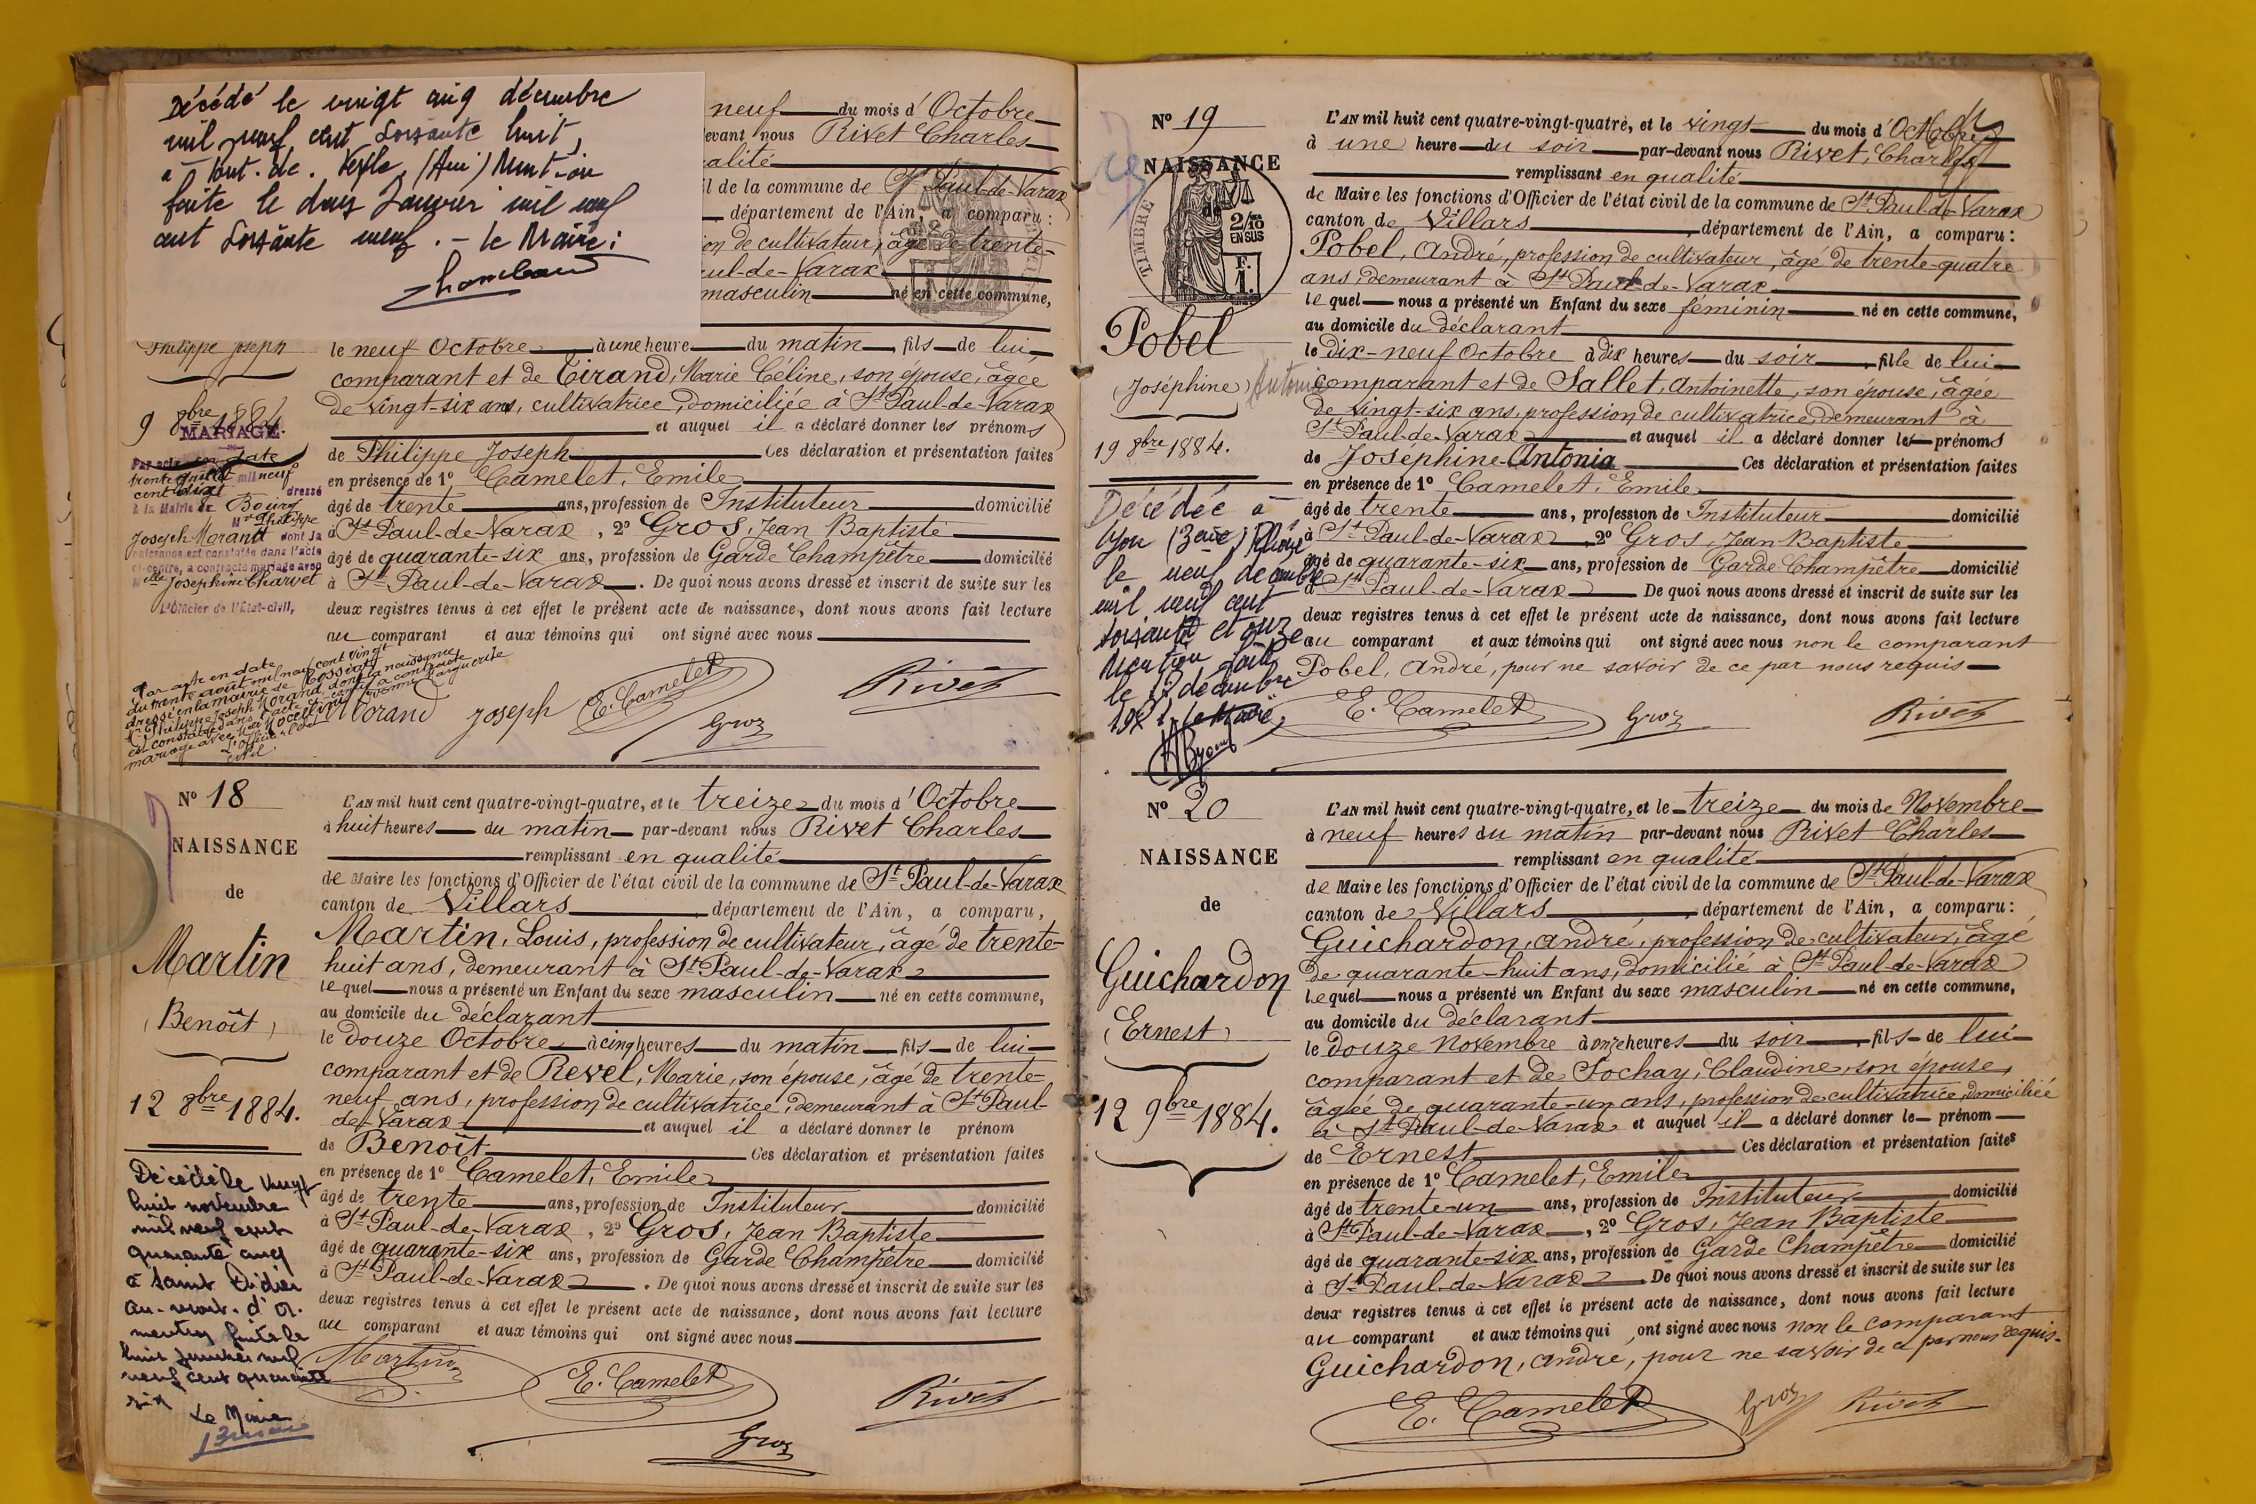 Décédé le vingt cinq décembre
mil neuf cent soixante huit,
à Pont. de. Veyle. (Ain) Mention
faite le deux Janvier mil neuf
cent soixante neuf. - Le Maire:
neuf du mois d'Octobre
evant nous Rivet Charles
alité
l de la commune de St Paul-de-Varax
département de l'Ain, a comparu:
on de cultivateur, âgé de trente-
aul-de-Varax
masculin né en cette commune,
Philippe Joseph
9 8bre 1884.
MARIAGE
Par acte en date
trente juillet mil neuf
cent dix dressé
à la Mairie de Bourg
Mr Philippe
Joseph Morand dont la
naissance est constatée dans l'acte
ci-contre, a contracté mariage avec
Melle Joséphine Charvet
L'Officier de l'Etat-civil,
le neuf Octobre à une heure du matin, fils de lui
comparant et de Tirand, Marie Céline, son épouse, âgée
de vingt-six ans, cultivatrice, domiciliée à St Paul-de-Varax
et auquel il a déclaré donner les prénoms
de Philippe Joseph Ces déclaration et présentation faites
en présence de 1° Camelet, Emile
âgé de trente ans, profession de Instituteur domicilié
à St Paul-de-Varax, 2° Gros, Jean Baptiste
âgé de quarante-six ans, profession de Garde Champêtre domicilié
à St Paul-de-Varax. De quoi nous avons dressé et inscrit de suite sur les
deux registres tenus à cet effet le présent acte de naissance, dont nous avons fait lecture
au comparant et aux témoins qui ont signé avec nous
Par acte en date
du trente août mil neuf cent vingt
dressé en la mairie de
Mr Philippe Joseph Morand dont la naissance
est constatée dans l'acte ci-contre a contracté
mariage avec Yvonne Marguerite
L'Officier de l'état
civil
Morand Joseph E. Camelet Gros Rivet
N° 18
NAISSANCE
de
Martin
(Benoît)
12 8bre 1884.
Décédé le vingt
huit novembre
mil neuf cent
quarante cinq
à Saint Didier
au-mont-d'Or.
mention faite le
huit janvier mil
neuf cent quarante
six
Le Maire
L'AN mil huit cent quatre-vingt-quatre, et le treize du mois d'Octobre
à huit heures du matin par-devant nous Rivet Charles
remplissant en qualité
de Maire les fonctions d'Officier de l'état civil de la commune de St Paul-de-Varax
canton de Villars, département de l'Ain, a comparu,
Martin, Louis, profession de cultivateur, âgé de trente-
huit ans, demeurant à St Paul-de-Varax
lequel nous a présenté un Enfant du sexe masculin né en cette commune,
au domicile du déclarant
le douze Octobre à cinq heures du matin, fils de lui
comparant et de Revel, Marie, son épouse, âgé de trente-
neuf ans, profession de cultivatrice, demeurant à St Paul-
de-Varax et auquel il a déclaré donner le prénom
de Benoît Ces déclaration et présentation faites
en présence de 1° Camelet, Emile
âgé de trente ans, profession de Instituteur domicilié
à St Paul-de-Varax, 2° Gros, Jean Baptiste
âgé de quarante-six ans, profession de Garde Champêtre domicilié
à St Paul-de-Varax. De quoi nous avons dressé et inscrit de suite sur les
deux registres tenus à cet effet le présent acte de naissance, dont nous avons fait lecture
au comparant et aux témoins qui ont signé avec nous
Martin E. Camelet Rivet
Gros
N° 19
NAISSANCE
de
TIMBRE
2/10
EN SUS
F.
1.
Pobel
(Joséphine) Antonia
19 8bre 1884.
Décédée à
Lyon (3eme) Rhône
le neuf décembre
mil neuf cent
soixante et onze
Mention faite
le 13 décembre
1971 Le Maire
L'AN mil huit cent quatre-vingt-quatre, et le vingt du mois d'Octobre
à une heure du soir par-devant nous Rivet, Charles
remplissant en qualité
de Maire les fonctions d'Officier de l'état civil de la commune de St Paul-de-Varax
canton de Villars, département de l'Ain, a comparu:
Pobel, André, profession de cultivateur, âgé de trente-quatre
ans, demeurant à St Paul-de-Varax
lequel nous a présenté un Enfant du sexe féminin né en cette commune,
au domicile du déclarant
le dix-neuf Octobre à dix heures du soir, fille de lui
comparant et de Sallet, Antoinette, son épouse, âgée
de vingt-six ans, profession de cultivatrice, demeurant à
St Paul-de-Varax et auquel il a déclaré donner les prénoms
de Joséphine-Antonia Ces déclaration et présentation faites
en présence de 1° Camelet, Emile
âgé de trente ans, profession de Instituteur domicilié
à St Paul-de-Varax, 2° Gros, Jean Baptiste
âgé de quarante-six ans, profession de Garde Champêtre domicilié
à St Paul-de-Varax De quoi nous avons dressé et inscrit de suite sur les
deux registres tenus à cet effet le présent acte de naissance, dont nous avons fait lecture
au comparant et aux témoins qui ont signé avec nous non le comparant
Pobel, André, pour ne savoir de ce par nous requis
E. Camelet Gros Rivet
N° 20
NAISSANCE
de
Guichardon
(Ernest)
12 9bre 1884.
L'AN mil huit cent quatre-vingt-quatre, et le treize du mois de Novembre
à neuf heures du matin par-devant nous Rivet Charles
remplissant en qualité
de Maire les fonctions d'Officier de l'état civil de la commune de St Paul-de-Varax
canton de Villars, département de l'Ain, a comparu:
Guichardon, André, profession de cultivateur, âgé
de quarante-huit ans, domicilié à St Paul-de-Varax
lequel nous a présenté un Enfant du sexe masculin né en cette commune,
au domicile du déclarant
le douze Novembre à onze heures du soir, fils de lui
comparant et de Sochay, Claudine, son épouse,
âgée de quarante-un ans, profession de cultivatrice, domiciliée
à St Paul-de-Varax et auquel il a déclaré donner le prénom
de Ernest Ces déclaration et présentation faites
en présence de 1° Camelet, Emile
âgé de trente-un ans, profession de Instituteur domicilié
à St Paul-de-Varax, 2° Gros, Jean Baptiste
âgé de quarante-six ans, profession de Garde Champêtre domicilié
à St Paul-de-Varax De quoi nous avons dressé et inscrit de suite sur les
deux registres tenus à cet effet le présent acte de naissance, dont nous avons fait lecture
au comparant et aux témoins qui ont signé avec nous non le comparant
Guichardon, André, pour ne savoir de ce par nous requis.
E. Camelet Gros Rivet